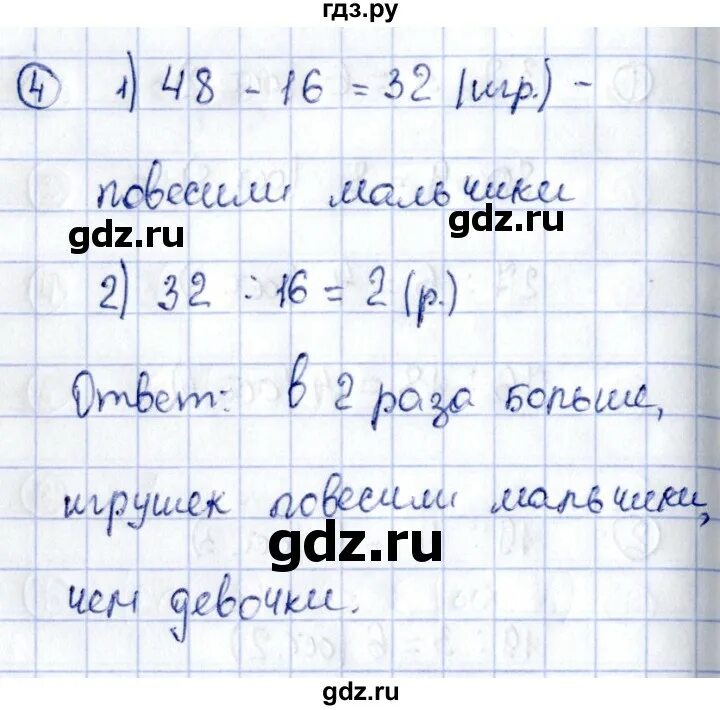 гдз.ру
④ 1) 48 - 16 = 32 (игр.) -
повесили мальчики
gdz.ru gdz.ru
2) 32 : 16 = 2 (р.)
Ответ: в 2 раза больше,
игрушек повесили мальчики,
gdz.ru
чем девочки.
gdz.ru